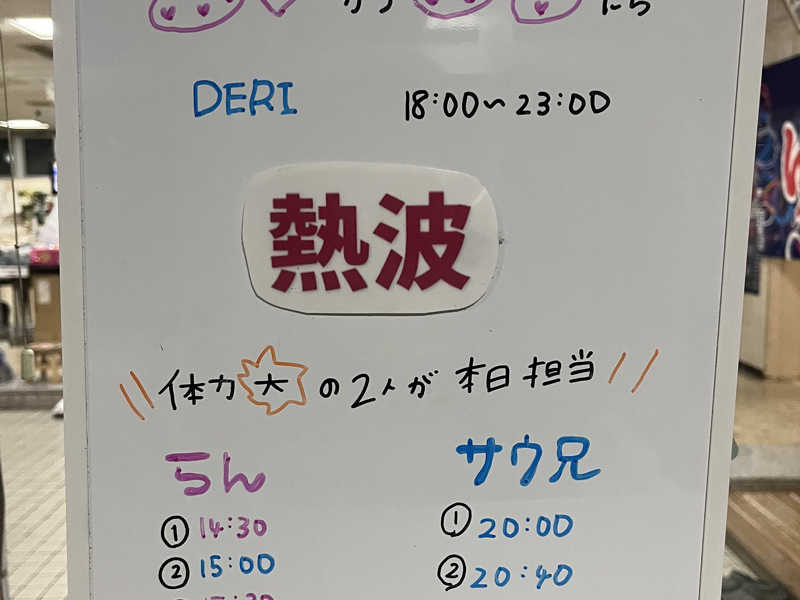 DERI 18:00~23:00
熱波
\\体力大の2人が本日担当//
らん サウ兄
① 14:30 ① 20:00
② 15:00 ② 20:40